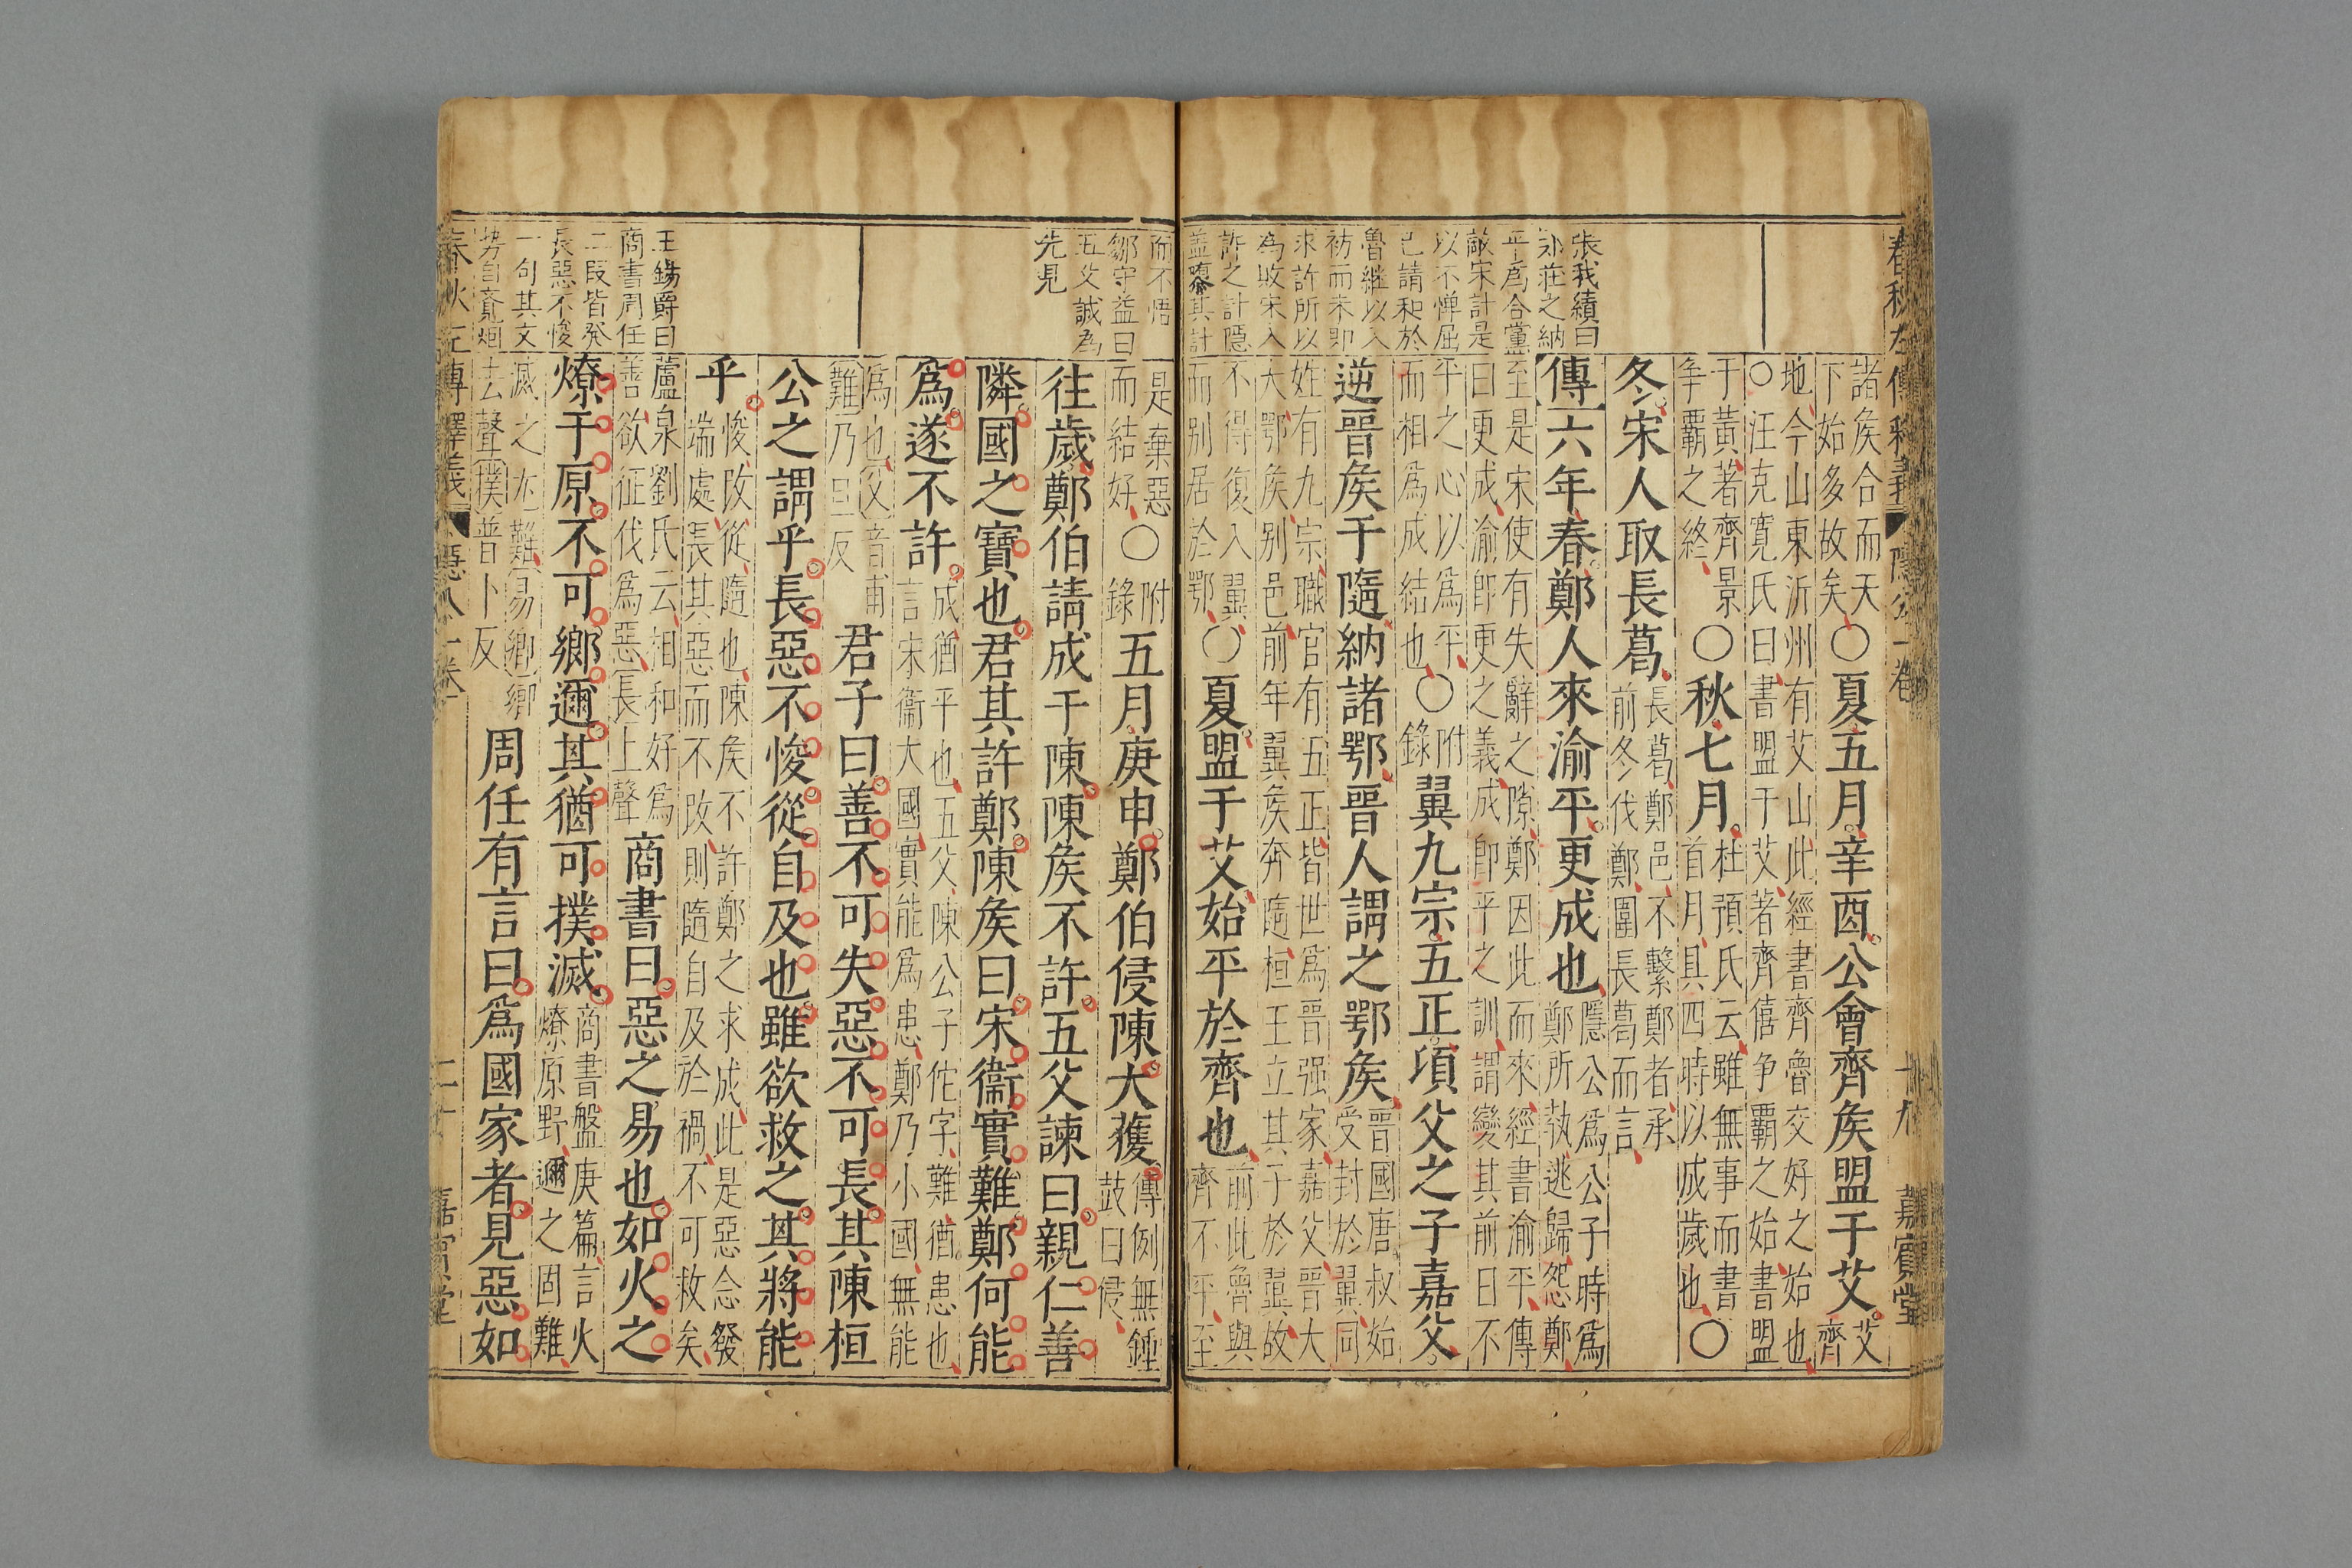 春秋左傳釋義 隱公一卷 十九 嘉賓堂
張我績曰
郑莊之納
平爲合黨
敵宋計是
以不憚屈
己請和於
魯繼以入
祊而未即
求許所以
爲敗宋入
許之計隱
盖墮其計
諸矦合而天下始多故矣〇夏五月辛酉公會齊矦盟于艾艾齊
地今山東沂州有艾山此經書齊魯交好之始也〇汪克寬氏曰書盟于艾著齊僖争覇之始書盟
于黃著齊景争覇之終〇秋七月杜預氏云雖無事而書首月具四時以成歲也〇
冬宋人取長葛長葛鄭邑不繫鄭者承前冬伐鄭圍長葛而言
傳六年春鄭人來渝平更成也隱公爲公子時爲鄭所執逃歸怨鄭
至是宋使有失辭之隙鄭因此而來經書渝平傳曰更成渝即更之義成即平之訓謂變其前日不
平之心以爲平而相爲成結也〇附録翼九宗五正項父之子嘉父
逆晉矦于隨納諸鄂晉人謂之鄂矦晉國唐叔始受封於翼同
姓有九宗職官有五正皆世爲晉强家嘉父晉大大鄂矦别邑前年翼矦奔隨桓王立其子於翼故
不得復入翼而别居於鄂〇夏盟于艾始平於齊也前此魯與齊不平至
而不悟
鄒守益曰
五父誠爲
先見
王錫爵曰
商書周任
二段皆發
長惡不悛
一句其文
勢自
是棄惡而結好〇附録五月庚申鄭伯侵陳大獲傳例無鍾鼓曰侵
往歲鄭伯請成于陳陳矦不許五父諫曰親仁善
隣國之寶也君其許鄭陳矦曰宋衞實難鄭何能
爲遂不許成猶平也五父陳公子佗字難猶患也言宋衞大國實能爲患鄭乃小國無能
爲也父音甫難乃旦反君子曰善不可失惡不可長其陳桓
公之謂乎長惡不悛從自及也雖欲救之其將能
乎悛改從隨也陳矦不許鄭之求成此是惡念發端處長其惡而不改則隨自及於禍不可救矣
蘆泉劉氏云相和好爲善欲征伐爲惡長上聲商書曰惡之易也如火之
燎于原不可鄉邇其猶可撲滅商書盤庚篇言火燎原野邇之固難
滅之尤難易鄉鄉去聲撲普卜反周任有言曰爲國家者見惡如
春秋左傳釋義 隱公一卷 二十 嘉賓堂